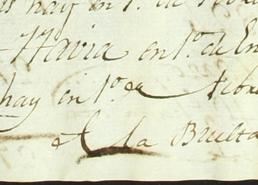 hay en 1º de
Havia en 1º. de En
hay en 1º de
A la Buelta